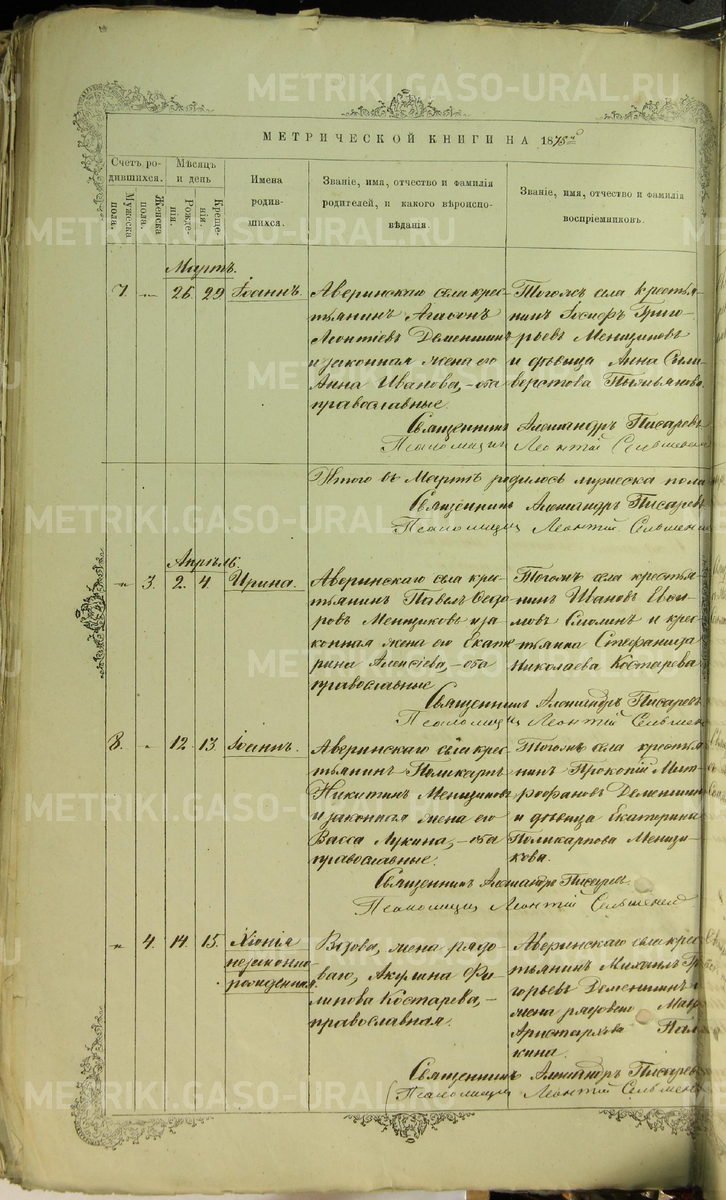 МЕТРИЧЕСКОЙ КНИГИ НА 1875 г.
Счетъ родившихся.
Мужеска пола.
Женска пола.
Мѣсяцъ и день
Рожденія.
Крещенія.
Имена родившихся.
Званіе, имя, отчество и фамилія родителей, и какого вѣроисповѣданія.
Званіе, имя, отчество и фамилія воспріемниковъ.
Мартъ.
7. — 26. 29. Іоаннъ.
Аверинскаго села крес-
тьянинъ Агафонъ
Леонтіевъ Деменшинъ
и законная жена его
Анна Иванова, — оба
православные.
Тогожъ села крестья-
нинъ Іосифъ Григо-
рьевъ Менщиковъ
и дѣвица Анна Сили-
верстова
Священникъ Александръ Писаревъ
Псаломщикъ Леонтій
Итого въ Мартѣ родилось мужеска пола
Священникъ Александръ Писаревъ
Псаломщикъ Леонтій
Апрѣль.
„ 3. 2. 4. Ирина.
Аверинскаго села кре-
тьянинъ Павелъ Ѳедо-
ровъ Менщиковъ и за-
конная жена его Екате
рина Алексіева, — оба
православные
Тогожъ села крестья-
нинъ
Смолинъ и крес-
тьянка Стефанида
Николаева Костарева
Священникъ Александръ Писаревъ
Псаломщикъ Леонтій
8. „ 12. 13. Іоаннъ.
Аверинскаго села крес-
тьянинъ Поликарпъ
Никитинъ Менщиковъ
и законная жена его
Васса Лукина, — оба
православные.
Тогожъ села крестья-
нинъ Прокопій Мит-
рофановъ Деменшинъ
и дѣвица Екатерина
Поликарпова Менщи-
кова.
Священникъ Александръ Писаревъ
Псаломщикъ Леонтій
„ 4. 14. 15. Хіонія
незаконно-
рожденная.
Вдова, жена рядо-
ваго, Акулина Фи-
липова Костарева, —
православная.
Аверинскаго села крес-
тьянинъ Михаилъ Гр
горьевъ Деменшинъ и
жена рядоваго
Аристархова
кина.
Священникъ Александръ Писаревъ
Псаломщикъ Леонтій
METRIKI.GASO-URAL.RU